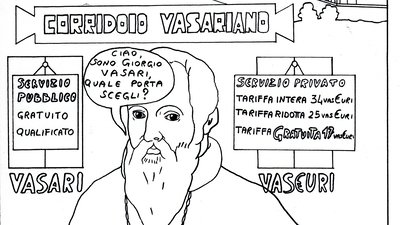 CORRIDOIO VASARIANO
CIAO,
SONO GIORGIO
VASARI,
QUALE PORTA
SCEGLI?
SERVIZIO
PUBBLICO
GRATUITO
QUALIFICATO
VASARI
SERVIZIO PRIVATO
TARIFFA INTERA 34 VAS€URI
TARIFFA RIDOTTA 25 VAS€URI
TARIFFA GRATUITA 17 VAS€URI
VAS€URI